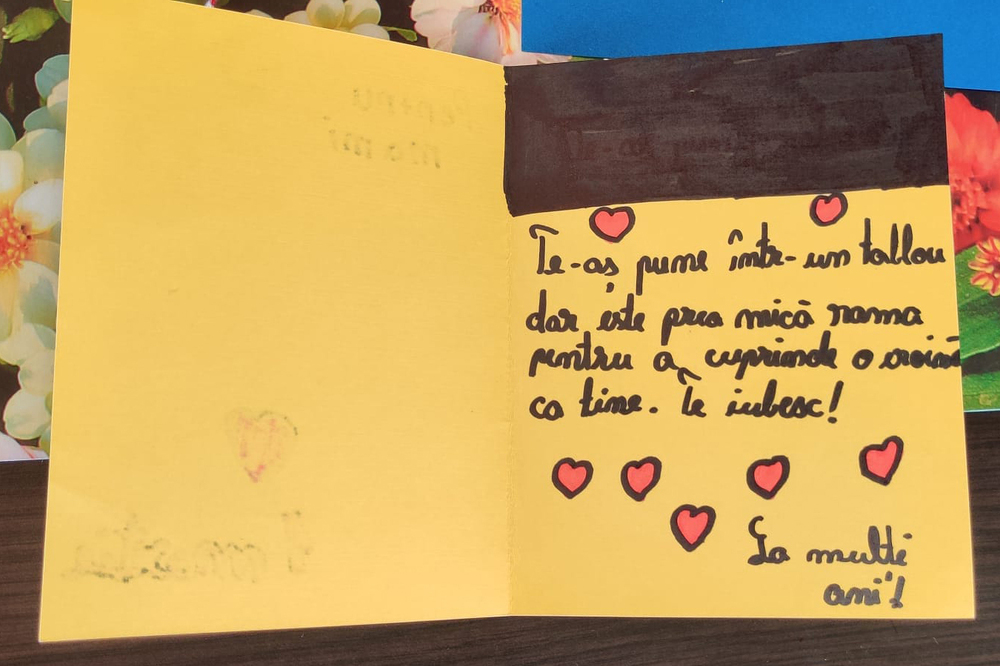 Pentru
mami
Te-aș pune într-un tablou
dar este prea mică rama
pentru a cuprinde o eroină
ca tine. Te iubesc!
La mulți
ani!